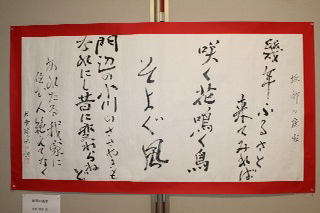 故郷の廃家
幾年ふるさと
来てみれば
咲く花鳴く鳥
そよぐ風
門辺の小川のささやきも
なれにし昔に変らねど
あれたる我家に
住む人絶えてなく